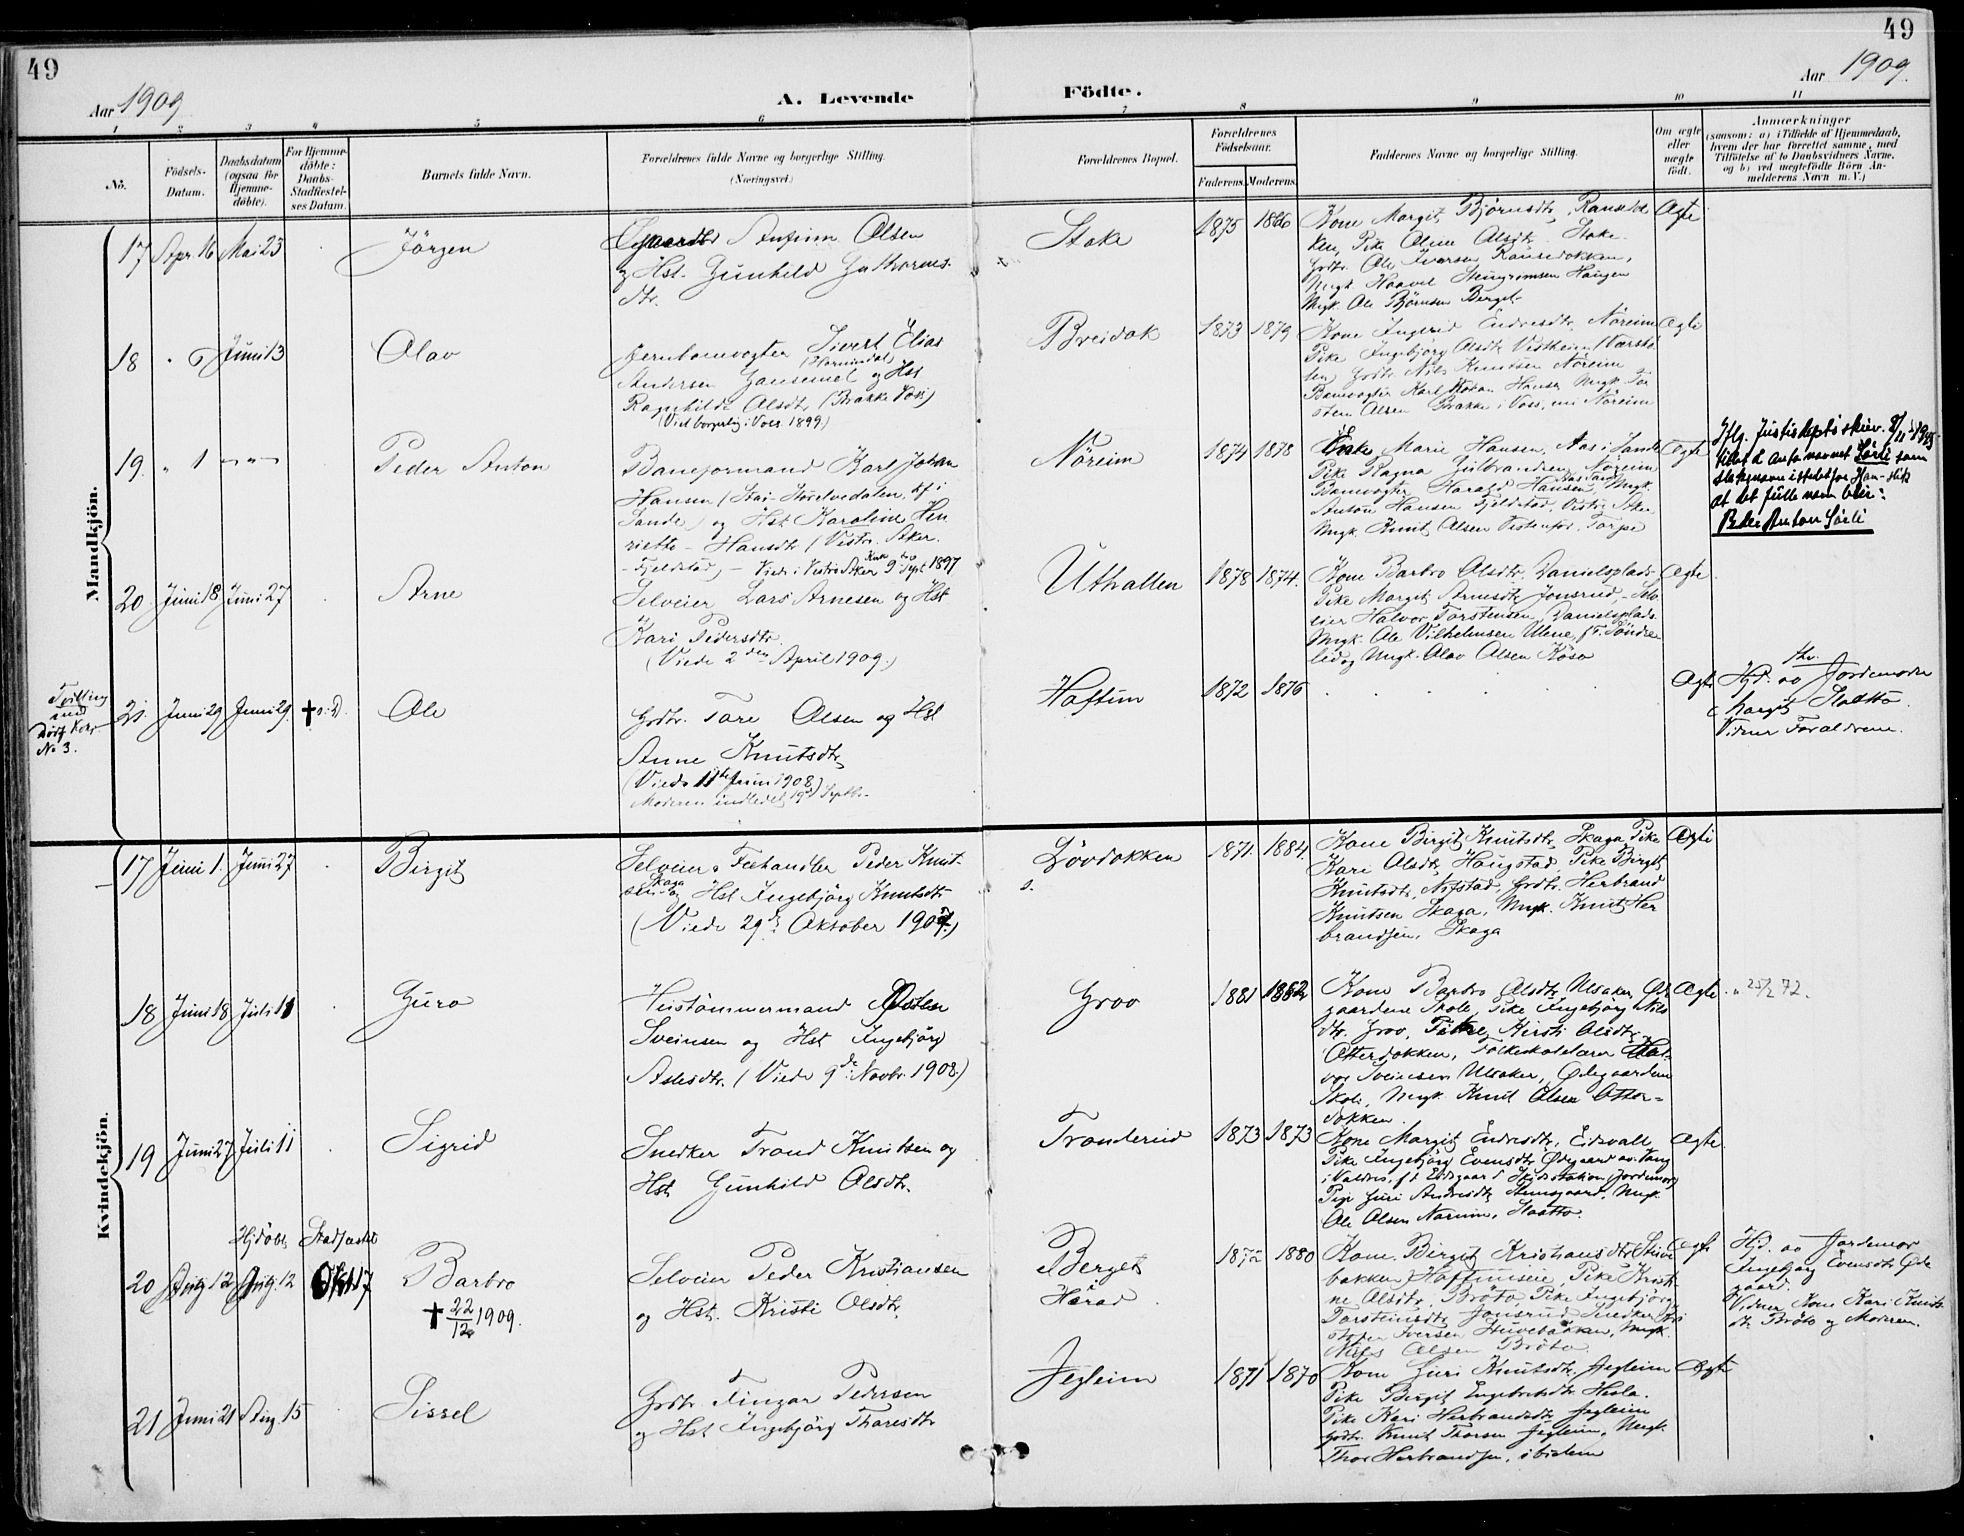 49
49
Aar 1909
A. Levende
Födte.
Aar 1909.
1 2 3 4 5 6 7 8 9 10 11
No.
Födsels-
Datum.
Daabsdatum
(ogsaa for
Hjemme-
döbte).
For Hjemme-
döbte:
Daabs-
Stadfæstel-
ses Datum.
Barnets fulde Navn.
Forældrenes fulde Navne og borgerlige Stilling.
(Næringsvei.)
Forældrenes Bopæl.
Forældrenes
Födselsaar.
Faderens.
Moderens.
Faddernes Navne og borgerlige Stilling.
Om ægte
eller
uægte
födt.
Anmærkninger
(saasom: a) i Tilfælde af Hjemmedaab,
hvem der har forrettet samme, med
Tilföielse af to Daabsvidners Navne,
og b) ved uegtefödte Börn An-
melderens Navn m. V.)
Mandkjön.
17 Apr. 16 Mai 23
Jörgen
Olsen
og Hst. Gunhild Guthorms-
dtr.
Stake
1875 1866
Kone Margit Björnsdtr,
Pike Oline Olsdtr. Stake.
Grdbr. Ole Iversen
Ungk. Haavel Steingrimsen Haugen
Ungk. Ole Björnsen Berget
Ægte
18 " 6 Juni 13
Olav
Jernbanevogter Sivert Elias
(Hornindal)
Andersen og Hst
Ragnhilde Olsdtr (Brække Voss)
(Viet borgerlig i Voss 1899.)
Breidok
1873 1879
Kone Ingerid Endresdtr. Nöreim
Pike Ingebjörg Olsdtr Vestheim
Grdbr. Nils Knutsen Nöreim
Banevogter Karl Johan Hansen Ungk. Tor
sten Olsen Brække i Voss, nu Nöreim
Ægte
19. " 1 " "
Peder Anton
Baneformand Karl Johan
Hansen
Sande) og Hst Karoline Hen
riette Hansdtr (Vestre Aker
Fjeldstad) - Viede i Vestre Aker Sept 1897
Nöreim
1874 1878
Marie Hansen, Aas i Sande
Pike Ragna Gulbrandsen, Nöreim
Banevogter Harald Hansen, Ungk.
Anton Hansen Fjeldstad, Vestre Aker
Ungk Knut Olsen Vestenfor, Torpe
Ægte
Iflg. Justisdepts skriv.
tillat å anta navnet Sørli som
slektsnavn istedetfor Hansen slik
at det fulle navn blir:
Peder Anton Sørli
20. Juni 18 Juni 27
Arne
Selveier Lars Arnesen og Hst
Kari Pedersdtr.
(Viede 2den April 1909.)
Uthallen
1878 1874.
Kone Barbro Olsdtr. Danielsplads-
Pike Margit Arnesdtr Jonsrud, - Selv
eier Halvor Torstensen, Danielsplads
Ungk. Ole Vilhelmsen Ulene, f. Söndre
lid og Ungk. Olav Olsen Röso
Ægte
Tvilling
med
Dödf. Kvkj.
No 3.
21. Juni 29 Juni 29 †
Ole
Grdbr. Tore Olsen og Hst
Anne Knutsdtr
(Viede 11te Juni 1908)
Moderen indledet 19d Septbr.
Haftun
1872 1876
Ægte
Hjd. av Jordemoder
Margit Slaatto
Vidner Forældrene.
Kvindekjön.
17 Juni 1. Juni 27
Birgit
Selveier, Fæhandler Peder Knut-
sen Skaga og Hst Ingebjörg Knutsdtr
(Viede 29de Oktober 1907.)
Lövdokken
s.
1871. 1884.
Kone Birgit Knutsdtr, Skaga Pike
Kari Olsdtr, Haugstad, Pike Birgit
Knutsdtr, Nefstad, Grdbr. Herbrand
Knutsen Skaga, Ungk. Knut Her
brandsen, Skaga
Ægte
18 Juni 18 Juli 11
Guro
Hustömmermand Östen
Sveinsen og Hst Ingebjörg
Aslesdtr. (Viede 9de Novbr. 1908.)
Groo
1881 1882
Kone Barbro Olsdtr, Ulsaker, Öde
gaardens Skole, Pike Ingebjörg Nils
dtr. Groo, Pike, Kirsti Olsdtr,
Otterdokken, Folkeskolelærer Hal-
vor Sveinsen Ulsaker, Ödegaardens
Skole, Ungk. Knut Olsen Otter-
dokken.
Ægte
25/2 72.
19 Juni 27 Juli 11
Sigrid
Snedker Trond Knutsen og
Hst. Gunhild Olsdtr.
Tronderud
1873 1873
Kone Margit Endresdtr, Eidsvall
Pike Ingebjörg Evensdtr Ödegaard av Vang
i Valdres, f. t. Eidsgaard Skydsstation (Jordemor)
Pige Guri Andresdtr Stensgaard, Ungk.
Ole Olsen Narum, Slaatto.
Ægte.
Hjdöbt, Stadfæstet
20 Aug. 12 Aug. 12 Okt 17
Barbro
† 22/12 1909.
Selveier Peder Kristiansen
og Hst. Kristi Olsdtr,
Berget
Hårad
1872 1880
Kone Birgit Kristiansdtr, Stuve
bakken, Haftunseie, Pike Kristi
ne Olsdtr, Bröto Pike Ingebjörg
Torsteinsdtr Jonsrud, Snedker Kri
stofer Iversen Stuvebakken, Ungk.
Nils Olsen Bröto.
Ægte
Hjd. av Jordemor
Ingebjörg Evensdtr Öde
gaard.
Vidner Kone Kari Knuts
dtr. Bröto og Moderen.
21 Juni 21 Aug. 15
Sissel
Grdbr. Fingar Pedersen
og Hst Ingebjörg Tharesdtr
Jegleim
1871 1870
Kone Guri Knutsdtr, Jegleim
Pike Birgit Engebretsdtr Hesla.
Pike Kari Herbrandsdtr Jegleim
Grdbr. Knut Thorsen Jegleim, Ungk.
Thor Herbrandsen, ibidem
Ægte